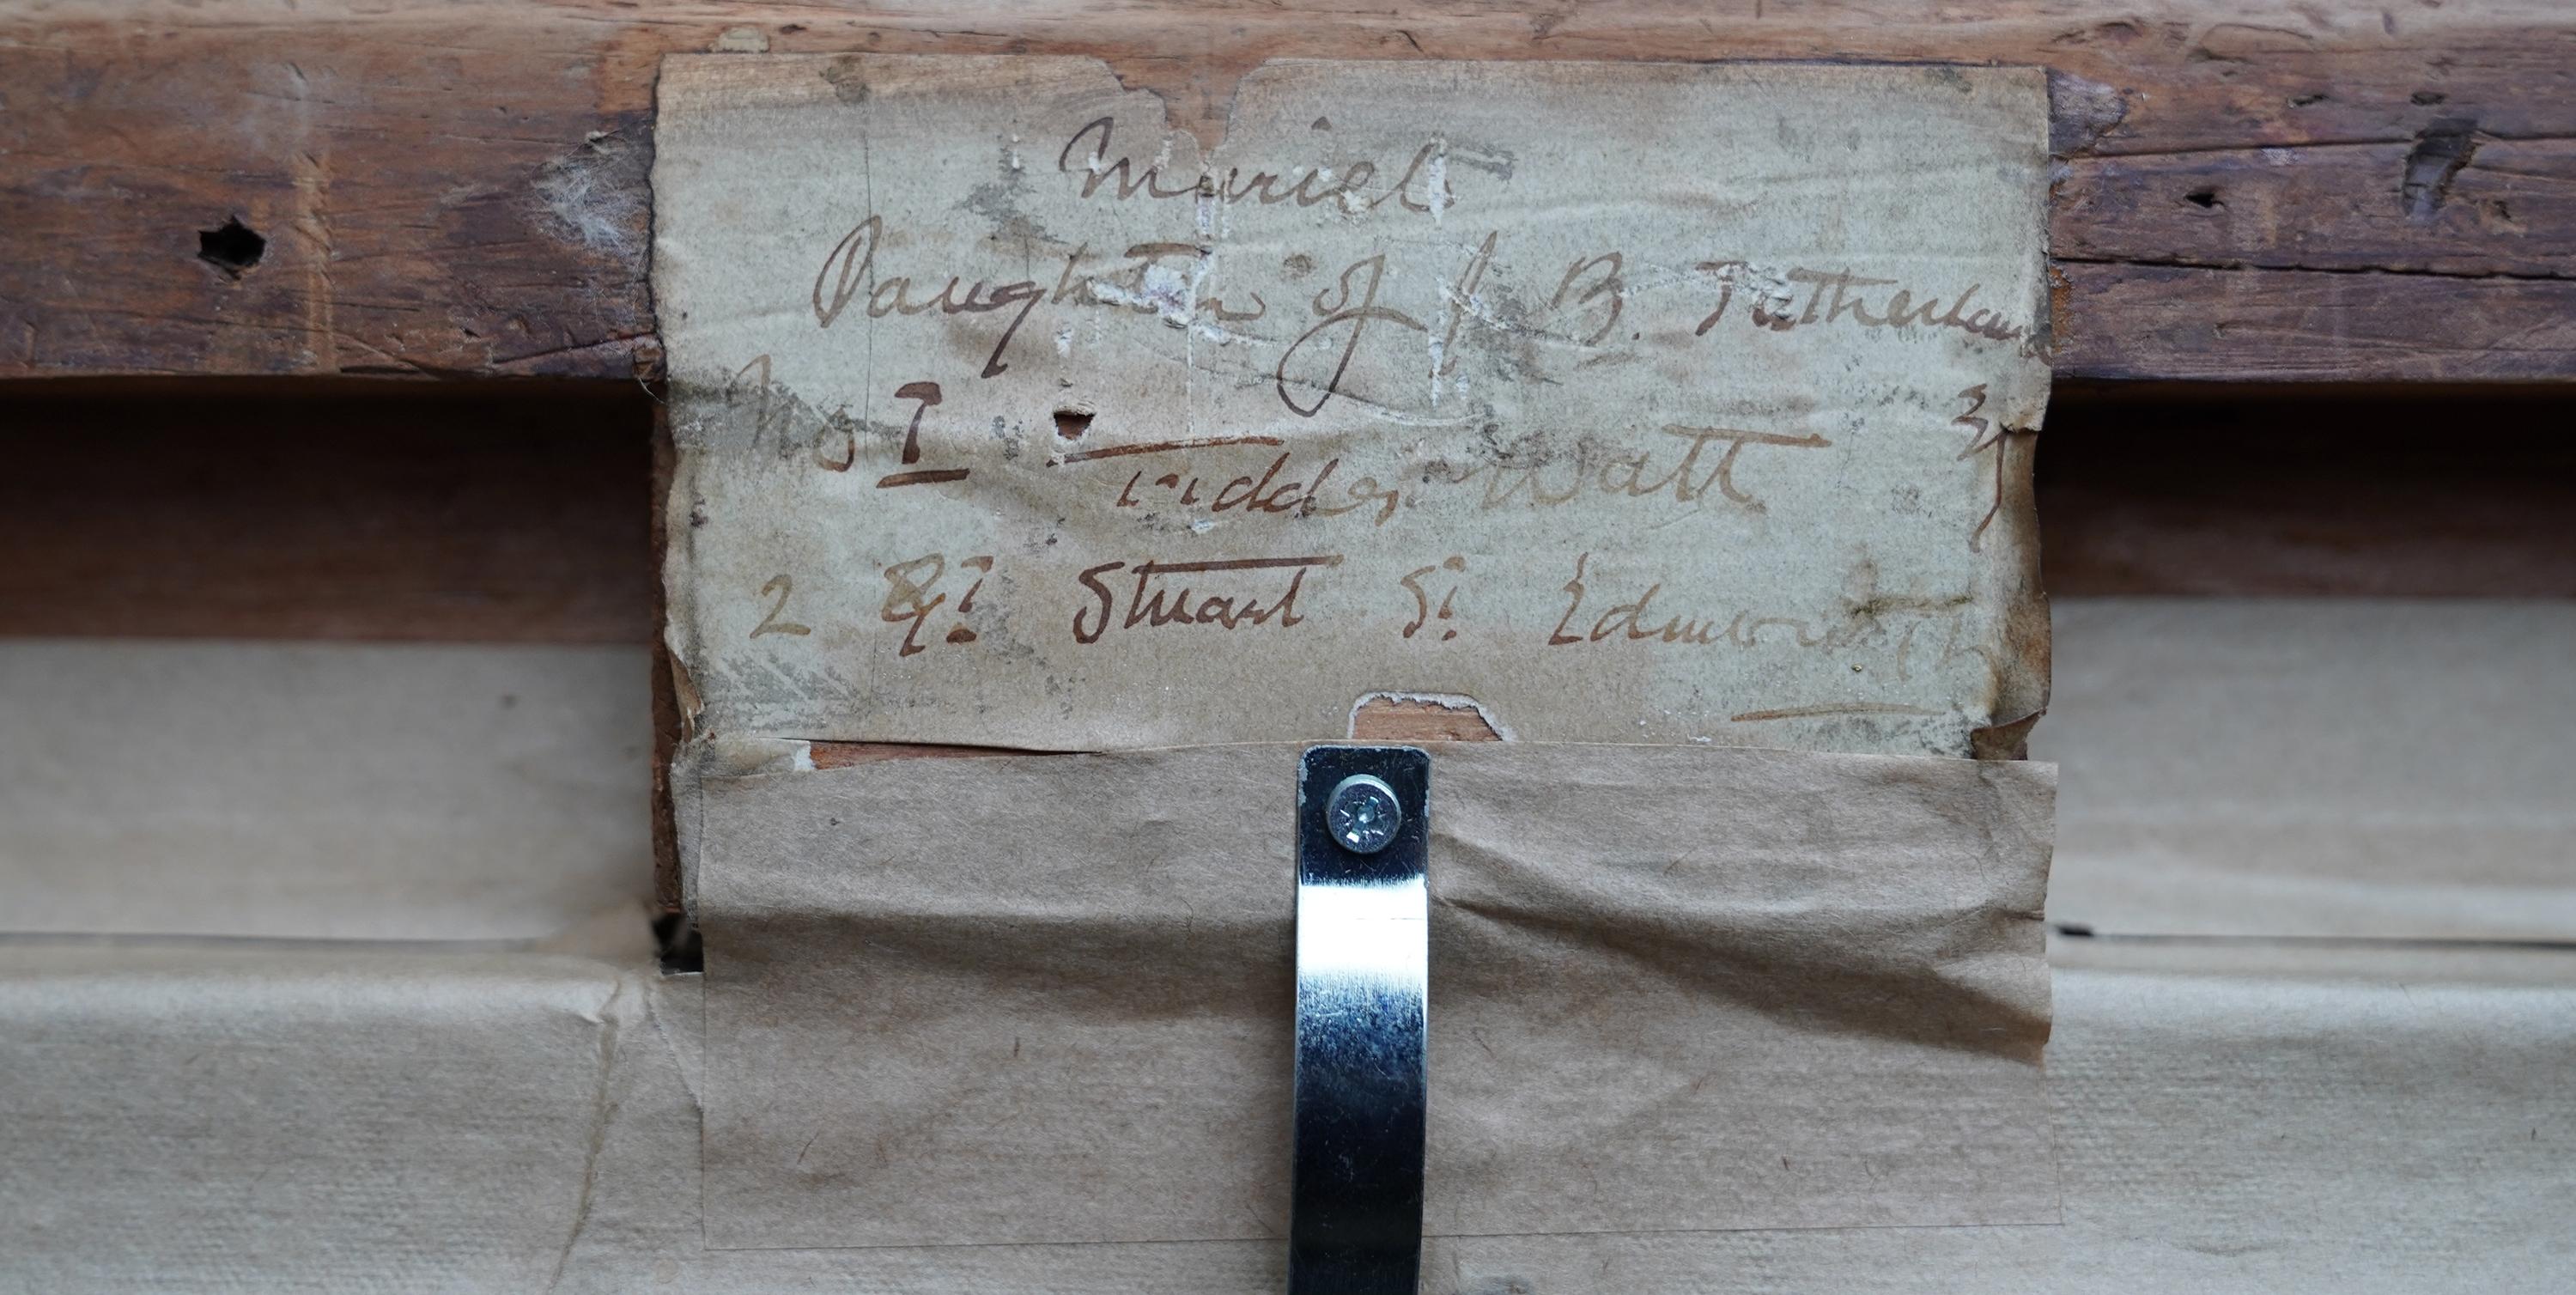 Muriel
Daughter of J B. Sutherland
No I 3
Fiddes Watt
2 Gt Stuart St Edinburgh